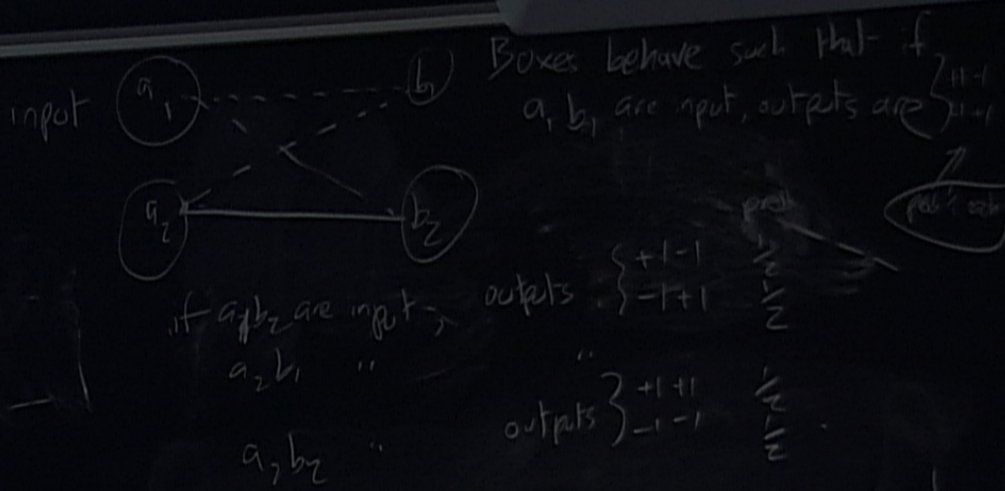 input a1 b1
a2 b2
Boxes behave such that if
a1 b1 are input, outputs are } +1 -1
-1 +1
prob
if a1 b2 are input, outputs { +1 -1 1/2
-1 +1 1/2
a2 b1 " "
outputs } +1 +1 1/2
-1 -1 1/2
a2 b2 "